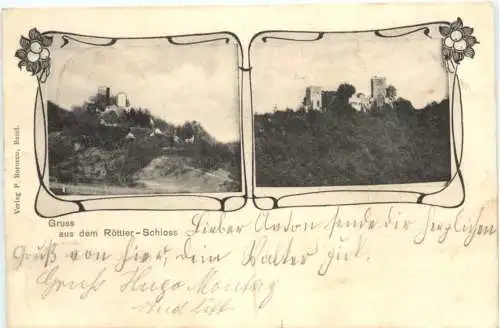 Verlag P. Borocco, Basel.
Gruss
aus dem Röttler-Schloss
Lieber Anton sende dir herzlichen
Gruß von hier, dein Walter
Gruss Hugo Montag